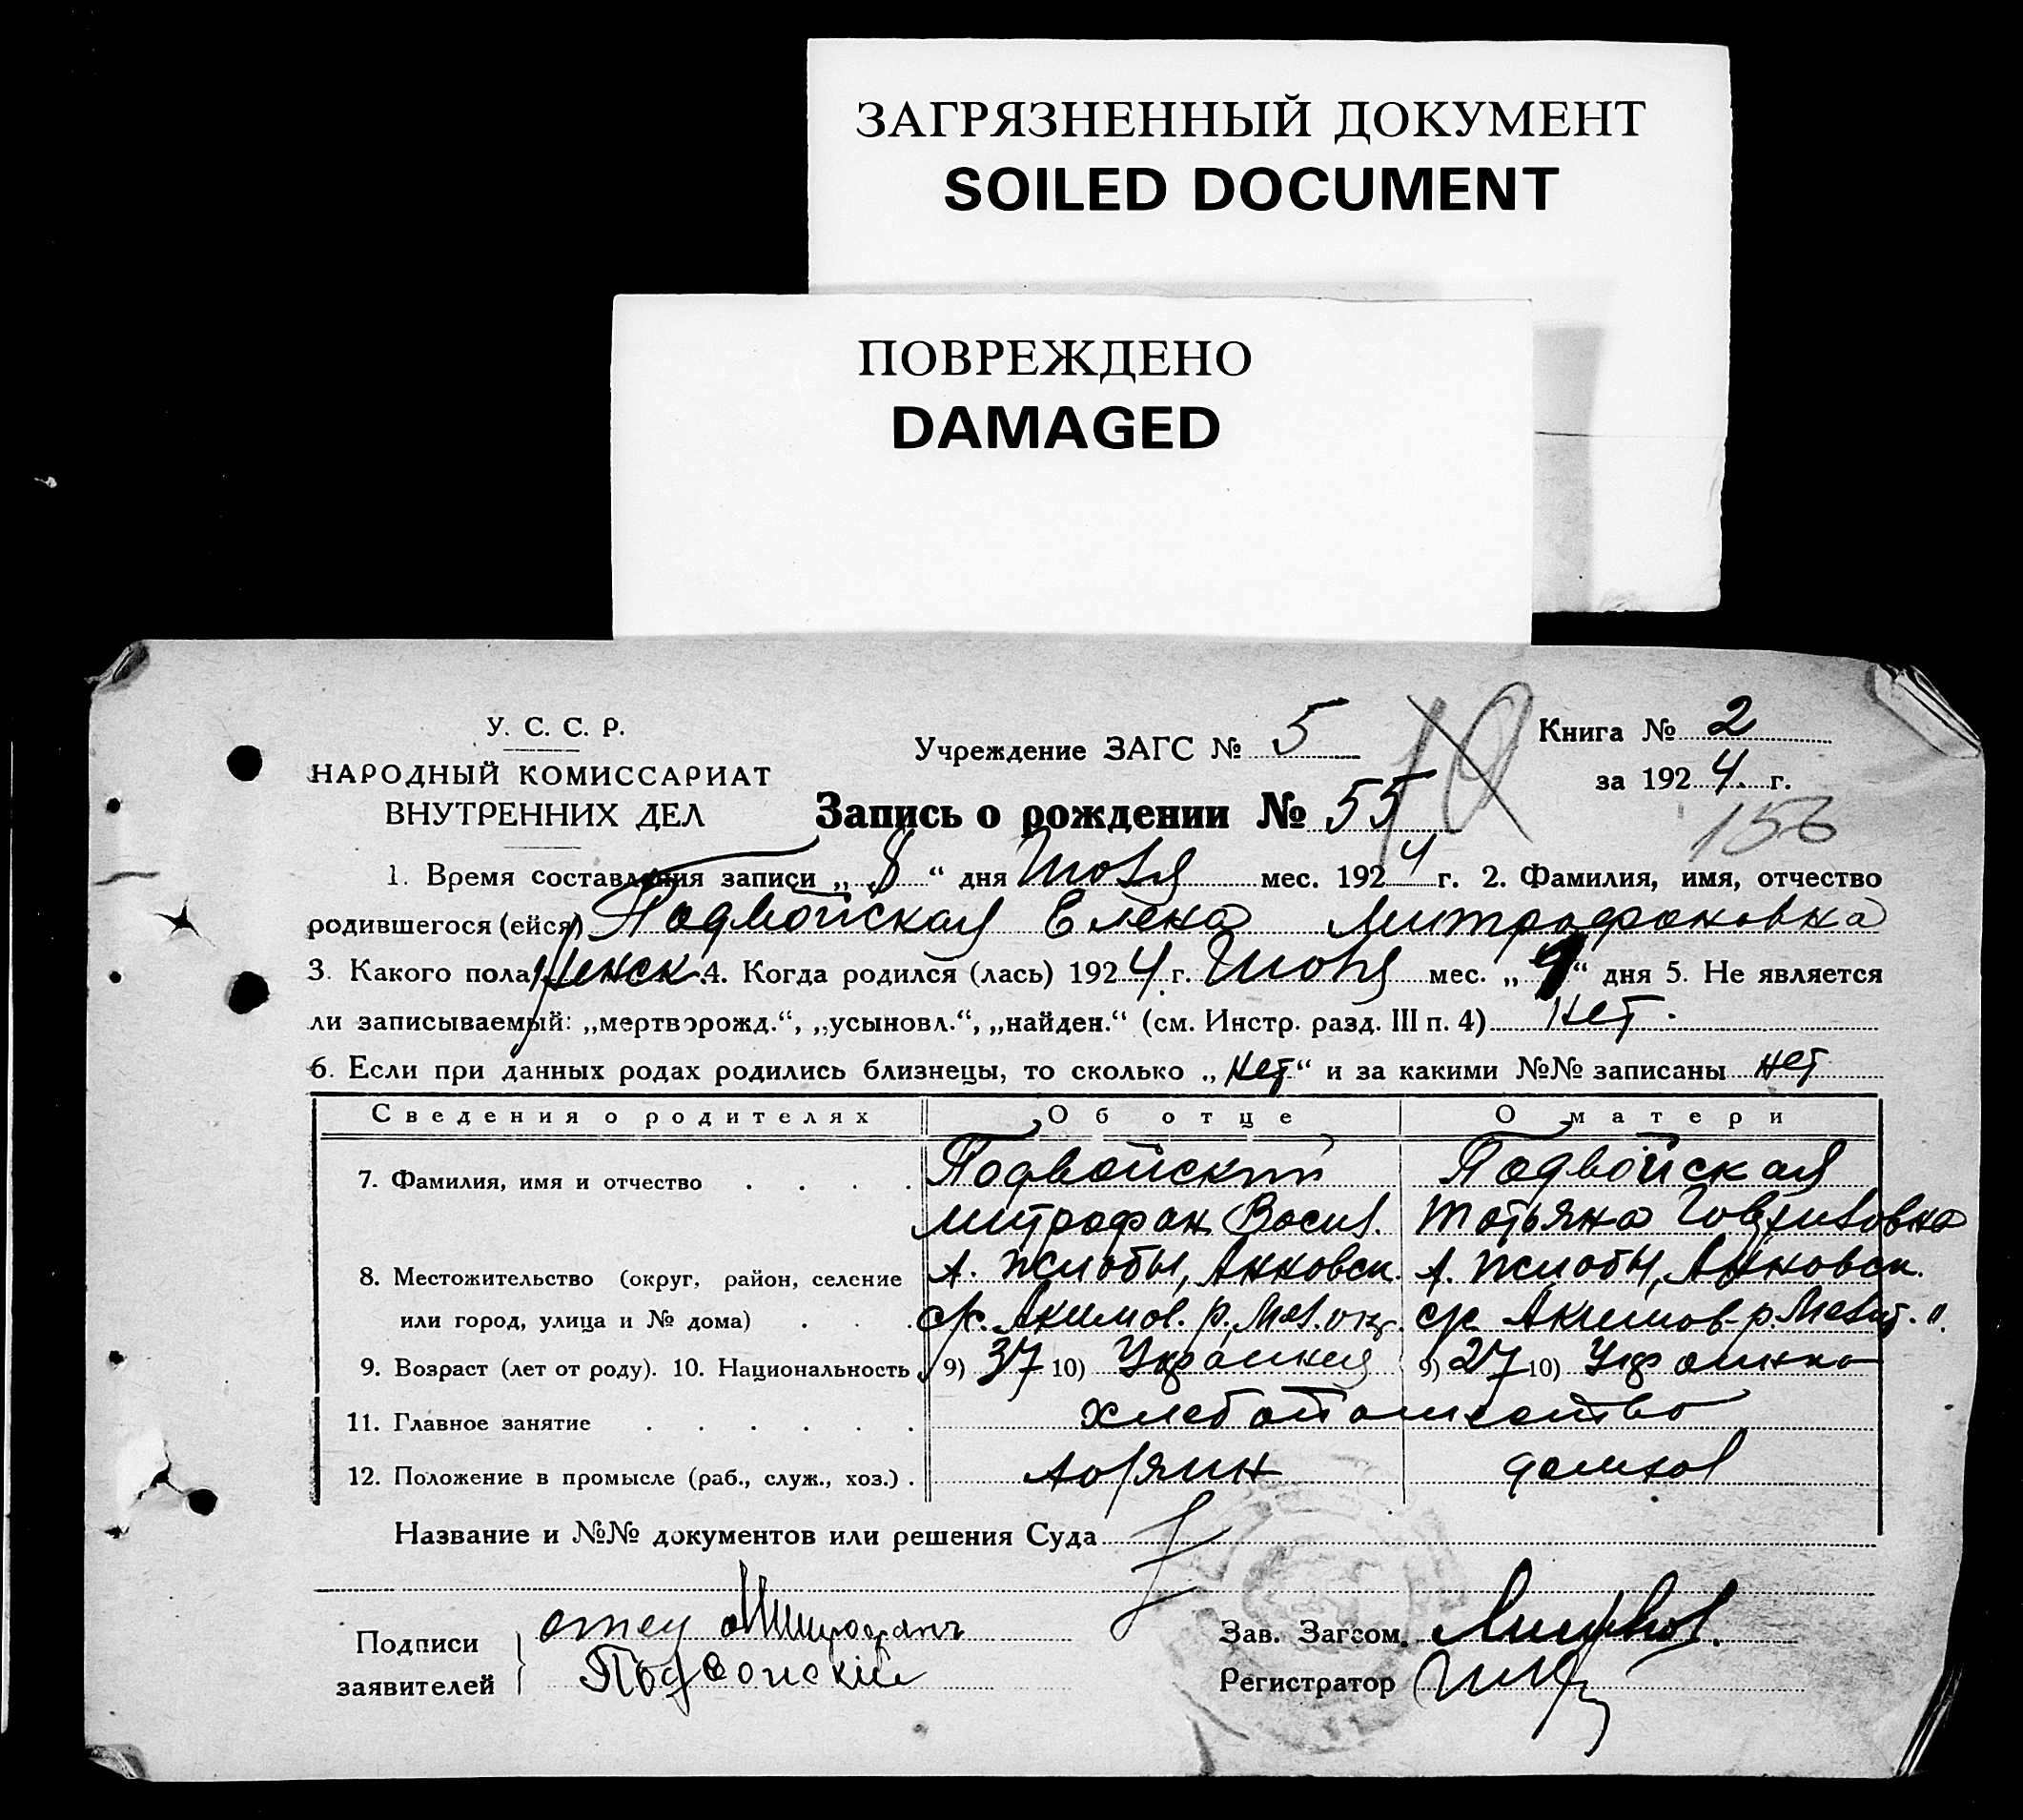 ЗАГРЯЗНЕННЫЙ ДОКУМЕНТ
SOILED DOCUMENT
ПОВРЕЖДЕНО
DAMAGED
У. С. С. Р.
НАРОДНЫЙ КОМИССАРИАТ
ВНУТРЕННИХ ДЕЛ
Учреждение ЗАГС № 5
10
Книга № 2
за 1924 г.
Запись о рождении № 55
156
1. Время составления записи „ 8 “ дня Июля мес. 1924 г. 2. Фамилия, имя, отчество
родившегося (ейся) Подвойская Елена Митрофановна
3. Какого пола женск. 4. Когда родился (лась) 1924 г. Июля мес. „ “ дня 5. Не является
ли записываемый: „мертворожд.“, „усыновл.“, „найден.“ (см. Инстр. разд. III п. 4) Нет.
6. Если при данных родах родились близнецы, то сколько „ нет “ и за какими №№ записаны нет
Сведения о родителях Об отце О матери
7. Фамилия, имя и отчество Подвойский Подвойская
Митрофан Васил. Татьяна
8. Местожительство (округ, район, селение Анновск. Анновск.
или город, улица и № дома) Акимов. р. Мел. окр. Акимов. р. Мелит. "
9. Возраст (лет от роду). 10. Национальность 9) 37 10) Украинец 9) 27 10) Украинка
11. Главное занятие хлебопашество
12. Положение в промысле (раб., служ., хоз.) домхоз
Название и №№ документов или решения Суда
Подписи заявителей отец Митрофанъ
Подвойскій
Зав. Загсом
Регистратор